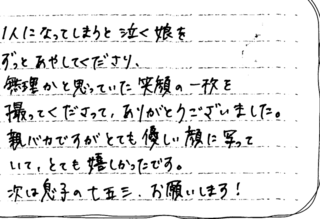 1人になってしまうと泣く娘を
ずっとあやしてくださり、
無理かと思っていた笑顔の一枚を
撮ってくださって、ありがとうございました。
親バカですがとても優しい顔に写って
いて、とても嬉しかったです。
次は息子の七五三、お願いします！